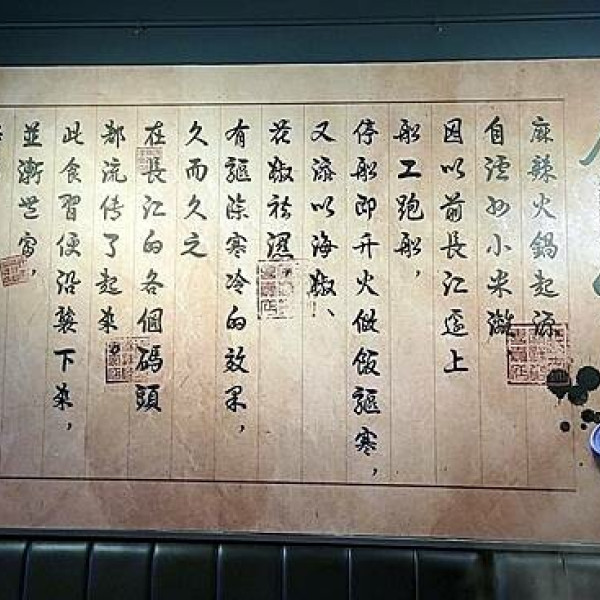 麻辣火鍋起源
自瀘州小米灘
因以前長江邊上
船工跑船，
停船即升火做飯驅寒，
又添以海椒、
花椒祛濕
有驅除寒冷的效果，
久而久之
在長江的各個碼頭
都流传了起來
此食習便沿襲下來，
並漸豐富，